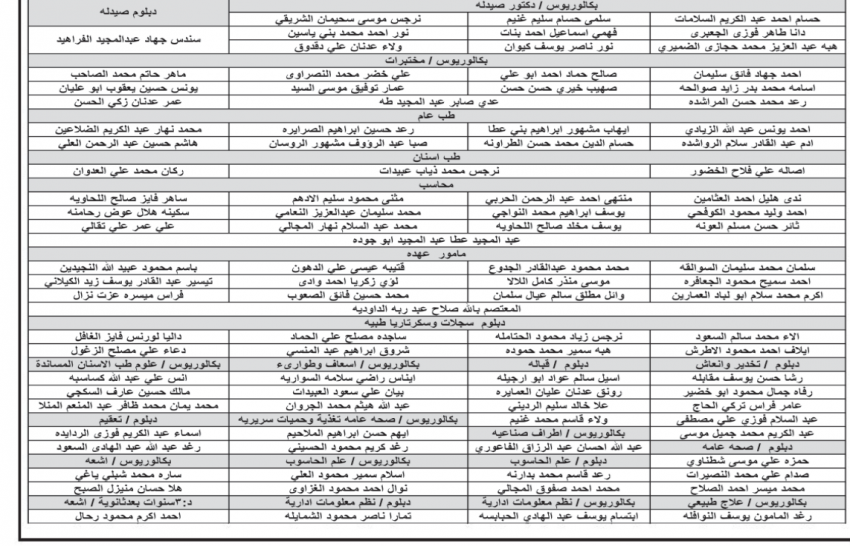 بكالوريوس / دكتور صيدله
دبلوم صيدله
حسام احمد عبد الكريم السلامات
سلمى حسام سليم غنيم
نرجس موسى سحيمان الشريقي
دانا طاهر فوزي الجعبري
فهمي اسماعيل احمد بنات
نور احمد محمد بني ياسين
سندس جهاد عبدالمجيد الفراهيد
هبه عبد العزيز محمد حجازى الضميري
نور ناصر يوسف كيوان
ولاء عدنان علي دقدوق
بكالوريوس / مختبرات
احمد جهاد فائق سليمان
صالح حماد احمد ابو علي
علي خضر محمد النصراوى
ماهر حاتم محمد الصاحب
اسامه محمد بدر زايد صوالحه
صهيب خيري حسن حسن
عمار توفيق موسى السيد
يونس حسين يعقوب ابو عليان
رعد محمد حسن المراشده
عدي صابر عبد المجيد طه
عمر عدنان زكي الحسن
طب عام
احمد يونس عبد الله الزيادي
ايهاب مشهور ابراهيم بني عطا
رعد حسين ابراهيم الصرايره
محمد نهار عبد الكريم الضلاعين
ادم عبد القادر سلام الرواشده
حسام الدين محمد حسن الطراونه
صبا عبد الرؤوف مشهور الروسان
هاشم حسين عبد الرحمن العلي
طب اسنان
اصاله علي فلاح الخضور
نرجس محمد ذياب عبيدات
ركان محمد علي العدوان
محاسب
ندى هليل احمد العثامين
منتهى احمد عبد الرحمن الحربي
مثنى محمود سليم الادهم
ساهر فايز صالح اللحاويه
احمد وليد محمود الكوفحي
يوسف ابراهيم محمد النواجي
محمد سليمان عبدالعزيز النعامي
سكينه هلال عوض رحامنه
ثائر حسن مسلم العونه
يوسف مخلد صالح اللحاويه
محمد عبد السلام نهار المجالي
علي عمر علي تقالي
عبد المجيد عطا عبد المجيد ابو جوده
مامور عهده
سلمان محمد سليمان السوالقه
محمد محمود عبدالقادر الجدوع
قتيبه عيسى علي الدهون
باسم محمود عبيد الله النجيدين
احمد سميح محمود الجعافره
موسى منذر كامل اللالا
لؤي زكريا احمد وادى
تيسير عبد القادر يوسف زيد الكيلاني
اكرم محمد سلام ابو لباد العمارين
وائل مطلق سالم عيال سلمان
محمد حسين فائق الصعوب
فراس ميسره عزت نزال
المعتصم بالله صلاح عبد ربه الداوديه
دبلوم سجلات وسكرتاريا طبيه
الاء محمد سالم السعود
نرجس زياد محمود الحتامله
ساجده مصلح علي الحماد
داليا لورنس فايز الغافل
ايلاف احمد محمود الاطرش
هبه سمير محمد حموده
شروق ابراهيم عبد المنسي
دعاء علي مصلح الزغول
دبلوم / تخدير وانعاش
دبلوم / قباله
بكالوريوس / اسعاف وطوارىء
بكالوريوس / علوم طب الاسنان المساندة
رشا حسن يوسف مقابله
اسيل سالم عواد ابو ارجيله
ايناس راضي سلامه السواريه
انس علي عبد الله كساسبه
رفاه جمال محمود ابو خضير
رونق عدنان عليان العمايره
بيان علي سعود العبيدات
مالك حسين عارف السكجي
عامر فراس تركي الحاج
علا خالد سليم الرديني
عبد الله هيثم محمد الجروان
محمد يمان محمد ظافر عبد المنعم المنلا
عبد السلام فوزي علي مصطفى
ولاء قاسم محمد غنيم
بكالوريوس / صحه عامه تغذية وحميات سريريه
دبلوم / تعقيم
عبد الكريم محمد جميل موسى
بكالوريوس / اطراف صناعيه
ايهم حسن ابراهيم الملاحيم
اسماء عبد الكريم فوزى الردايده
دبلوم / صحه عامه
عبد الله احسان عبد الرزاق الفاعوري
رغد كريم محمود الحسيني
رغد عبد الله عبد الهادى السعود
حمزه علي موسى شطناوي
دبلوم / علم الحاسوب
بكالوريوس / علم الحاسوب
بكالوريوس / اشعه
صدام علي محمد النصيرات
رعد قاسم محمد بدارنه
اسلام سمير محمود العلي
ساره محمد شبلي ياغي
محمد ميسر احمد الصلاح
محمد احمد صفوق المجالي
نوال احمد محمود الغزاوى
هلا حسان منيزل الصبح
بكالوريوس / علاج طبيعي
بكالوريوس / نظم معلومات ادارية
دبلوم / نظم معلومات ادارية
د:٣سنوات بعدثانوية / اشعه
رغد المامون يوسف النوافله
ابتسام يوسف عبد الهادي الحبابسه
تمارا ناصر محمود الشمايله
احمد اكرم محمود رحال